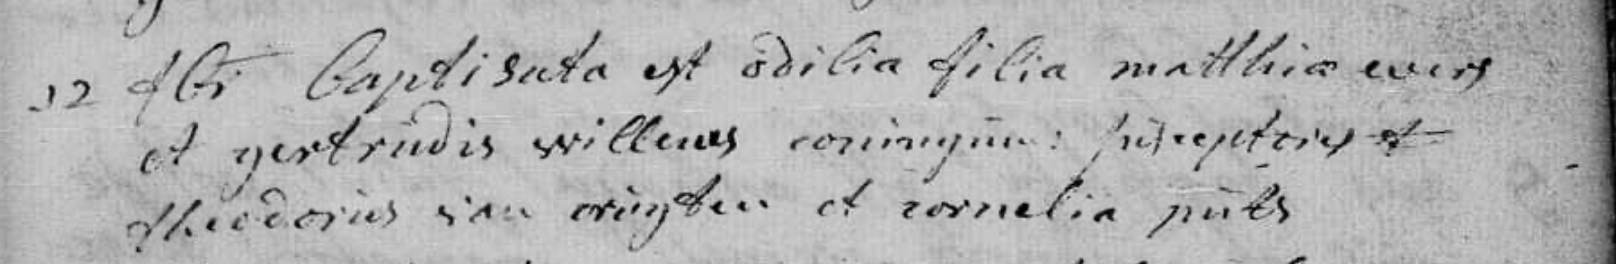 12 fbr baptisata est odilia filia matthiæ evers
et gertrudis willems coniugum: susceptores et
theodorus van cruijten et cornelia puts